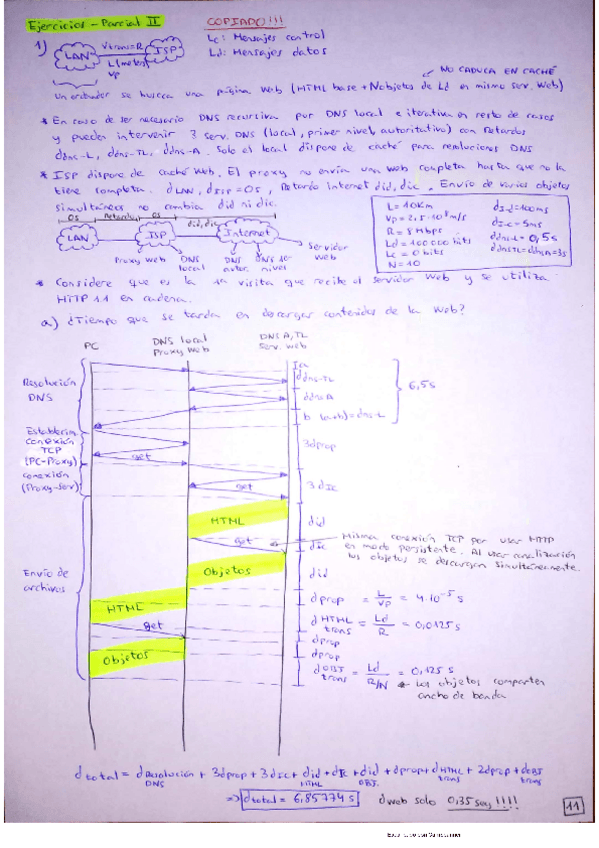 Ejercicios - Parcial II
COPIADO!!!
1) LAN Vtrans=R ISP
L (metros)
Vp
Lc: Mensajes control
Ld: Mensajes datos
NO CADUCA EN CACHÉ
Un ordenador se busca una página web (HTML base + N objetos de Ld en mismo serv. Web)
* En caso de ser necesario DNS recursiva por DNS local e iterativa en resto de casos
y pueden intervenir 3 serv. DNS (local, primer nivel, autoritativo) con retardos
ddns-L, ddns-TL, ddns-A. Solo el local dispone de caché para resoluciones DNS
* ISP dispone de caché web. El proxy no envía una web completa hasta que no la
tiene completa. dLAN, dISP = 0s, Retardo internet did, dic. Envío de varios objetos
simultáneos no cambia did ni dic.
0s Retardo 0s did, dic
LAN ISP Internet
Proxy web DNS local DNS autor. DNS 1er nivel Servidor web
L = 10km
Vp = 2,5·10⁸ m/s
R = 8 Mbps
Ld = 100000 bits
Lc = 0 bits
N = 10
dI-d=100ms
dI-c=5ms
ddns-L = 0,5s
ddnsTL=ddnsA=3s
* Considere que es la 1ª visita que recibe el servidor Web y se utiliza
HTTP 1.1 en cadena.
a) ¿Tiempo que se tarda en descargar contenidos de la web?
PC
DNS local
Proxy web
DNS A, TL
Serv. web
Resolución
DNS
ddns-TL
ddnsA
b (a+b)=dns-L
6,5s
Establecim
conexión
TCP
(PC-Proxy)
3dprop
get
conexión
(Proxy-Serv)
get
3dIc
Envío de
archivos
HTML
did
get
dic
Misma conexión TCP por usar HTTP
en modo persistente. Al usar canalización
los objetos se descargan simultáneamente.
Objetos
did
HTML
dprop = L/Vp = 4·10⁻⁵ s
get
d HTML trans = Ld/R = 0,0125 s
dprop
Objetos
dprop
d OBJ trans = Ld/(R/N) = 0,125 s
Los objetos comparten
ancho de banda
dtotal = dResolución DNS + 3dprop + 3dIc + did HTML + dIc + did OBJ. + dprop + dHTML trans + 2dprop + dOBJ trans
=> dtotal = 6,85774 s
dweb solo 0,35 seg!!!!
11